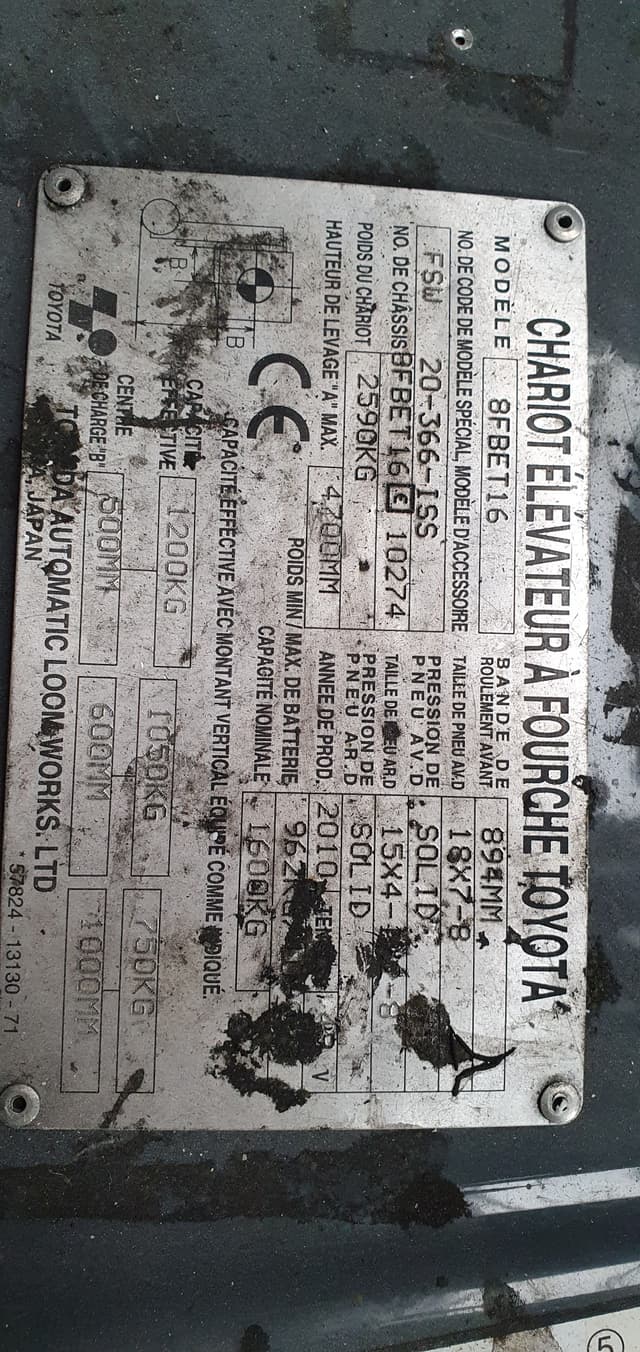 CHARIOT ÉLÉVATEUR À FOURCHE TOYOTA
MODÈLE 8FBET16
NO. DE CODE DE MODÈLE SPÉCIAL, MODÈLE D'ACCESSOIRE
FSW 20-366-ISS
NO. DE CHÂSSIS 8FBET16 E 10274
POIDS DU CHARIOT 2590KG
HAUTEUR DE LEVAGE "A" MAX. 4700MM
BANDE DE ROULEMENT AVANT 894MM
TAILLE DE PNEU AV.D 18X7-8
PRESSION DE PNEU AV.D SOLID
TAILLE DE PNEU AR.D 15X4- -8
PRESSION DE PNEU AR.D SOLID
ANNEE DE PROD. 2010 V
POIDS MIN / MAX. DE BATTERIE
CAPACITÉ NOMINALE 1600KG
CE
CAPACITÉ EFFECTIVE AVEC MONTANT VERTICAL ÉQUIPÉ COMME INDIQUÉ.
B
B
CAPACITÉ EFFECTIVE 1200KG 1050KG 750KG
CENTRE DE CHARGE "B" 500MM 600MM 1000MM
TOYOTA
TOYODA AUTOMATIC LOOM WORKS. LTD
JAPAN
57824-13130-71
5